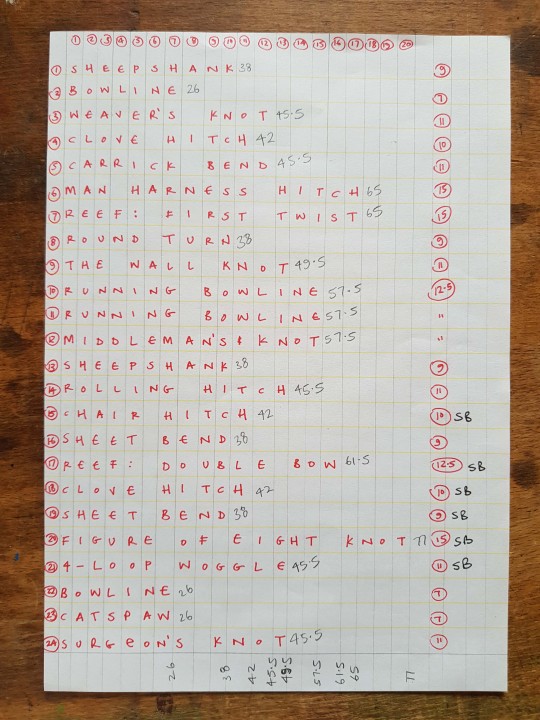 1 2 3 4 5 6 7 8 9 10 11 12 13 14 15 16 17 18 19 20
1 SHEEPSHANK 38 9
2 BOWLINE 26 7
3 WEAVER'S KNOT 45.5 11
4 CLOVE HITCH 42 10
5 CARRICK BEND 45.5 11
6 MAN HARNESS HITCH 65 15
7 REEF: FIRST TWIST 65 15
8 ROUND TURN 38 9
9 THE WALL KNOT 49.5 11
10 RUNNING BOWLINE 57.5 12.5
11 RUNNING BOWLINE 57.5 "
12 MIDDLEMAN'S KNOT 57.5 "
13 SHEEPSHANK 38 9
14 ROLLING HITCH 45.5 11
15 CHAIR HITCH 42 10 SB
16 SHEET BEND 38 9
17 REEF: DOUBLE BOW 61.5 12.5 SB
18 CLOVE HITCH 42 10 SB
19 SHEET BEND 38 9 SB
20 FIGURE OF EIGHT KNOT 77 15 SB
21 4-LOOP WOGGLE 45.5 11 SB
22 BOWLINE 26 7
23 CATSPAW 26 7
24 SURGEON'S KNOT 45.5 11
26 38 42 45.5 49.5 57.5 61.5 65 77